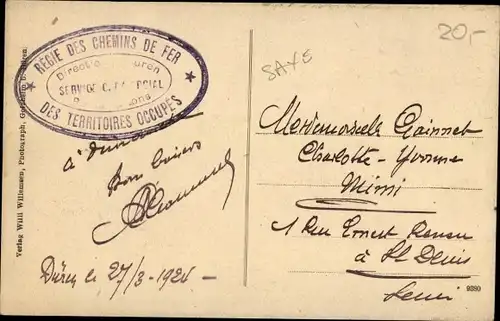 20,-
SAXE
RÉGIE DES CHEMINS DE FER
Direction Düren
SERVICE COMMERCIAL
DES TERRITOIRES OCCUPÉS
à dimanche
Bon baisers
Düren le 27/3-1924-
Mademoiselle
Charlotte-Yvonne
Mimi
1 Rue Ernest Renan
à St Denis
Seine
9380
Verlag Willi Willemsen, Photograph,